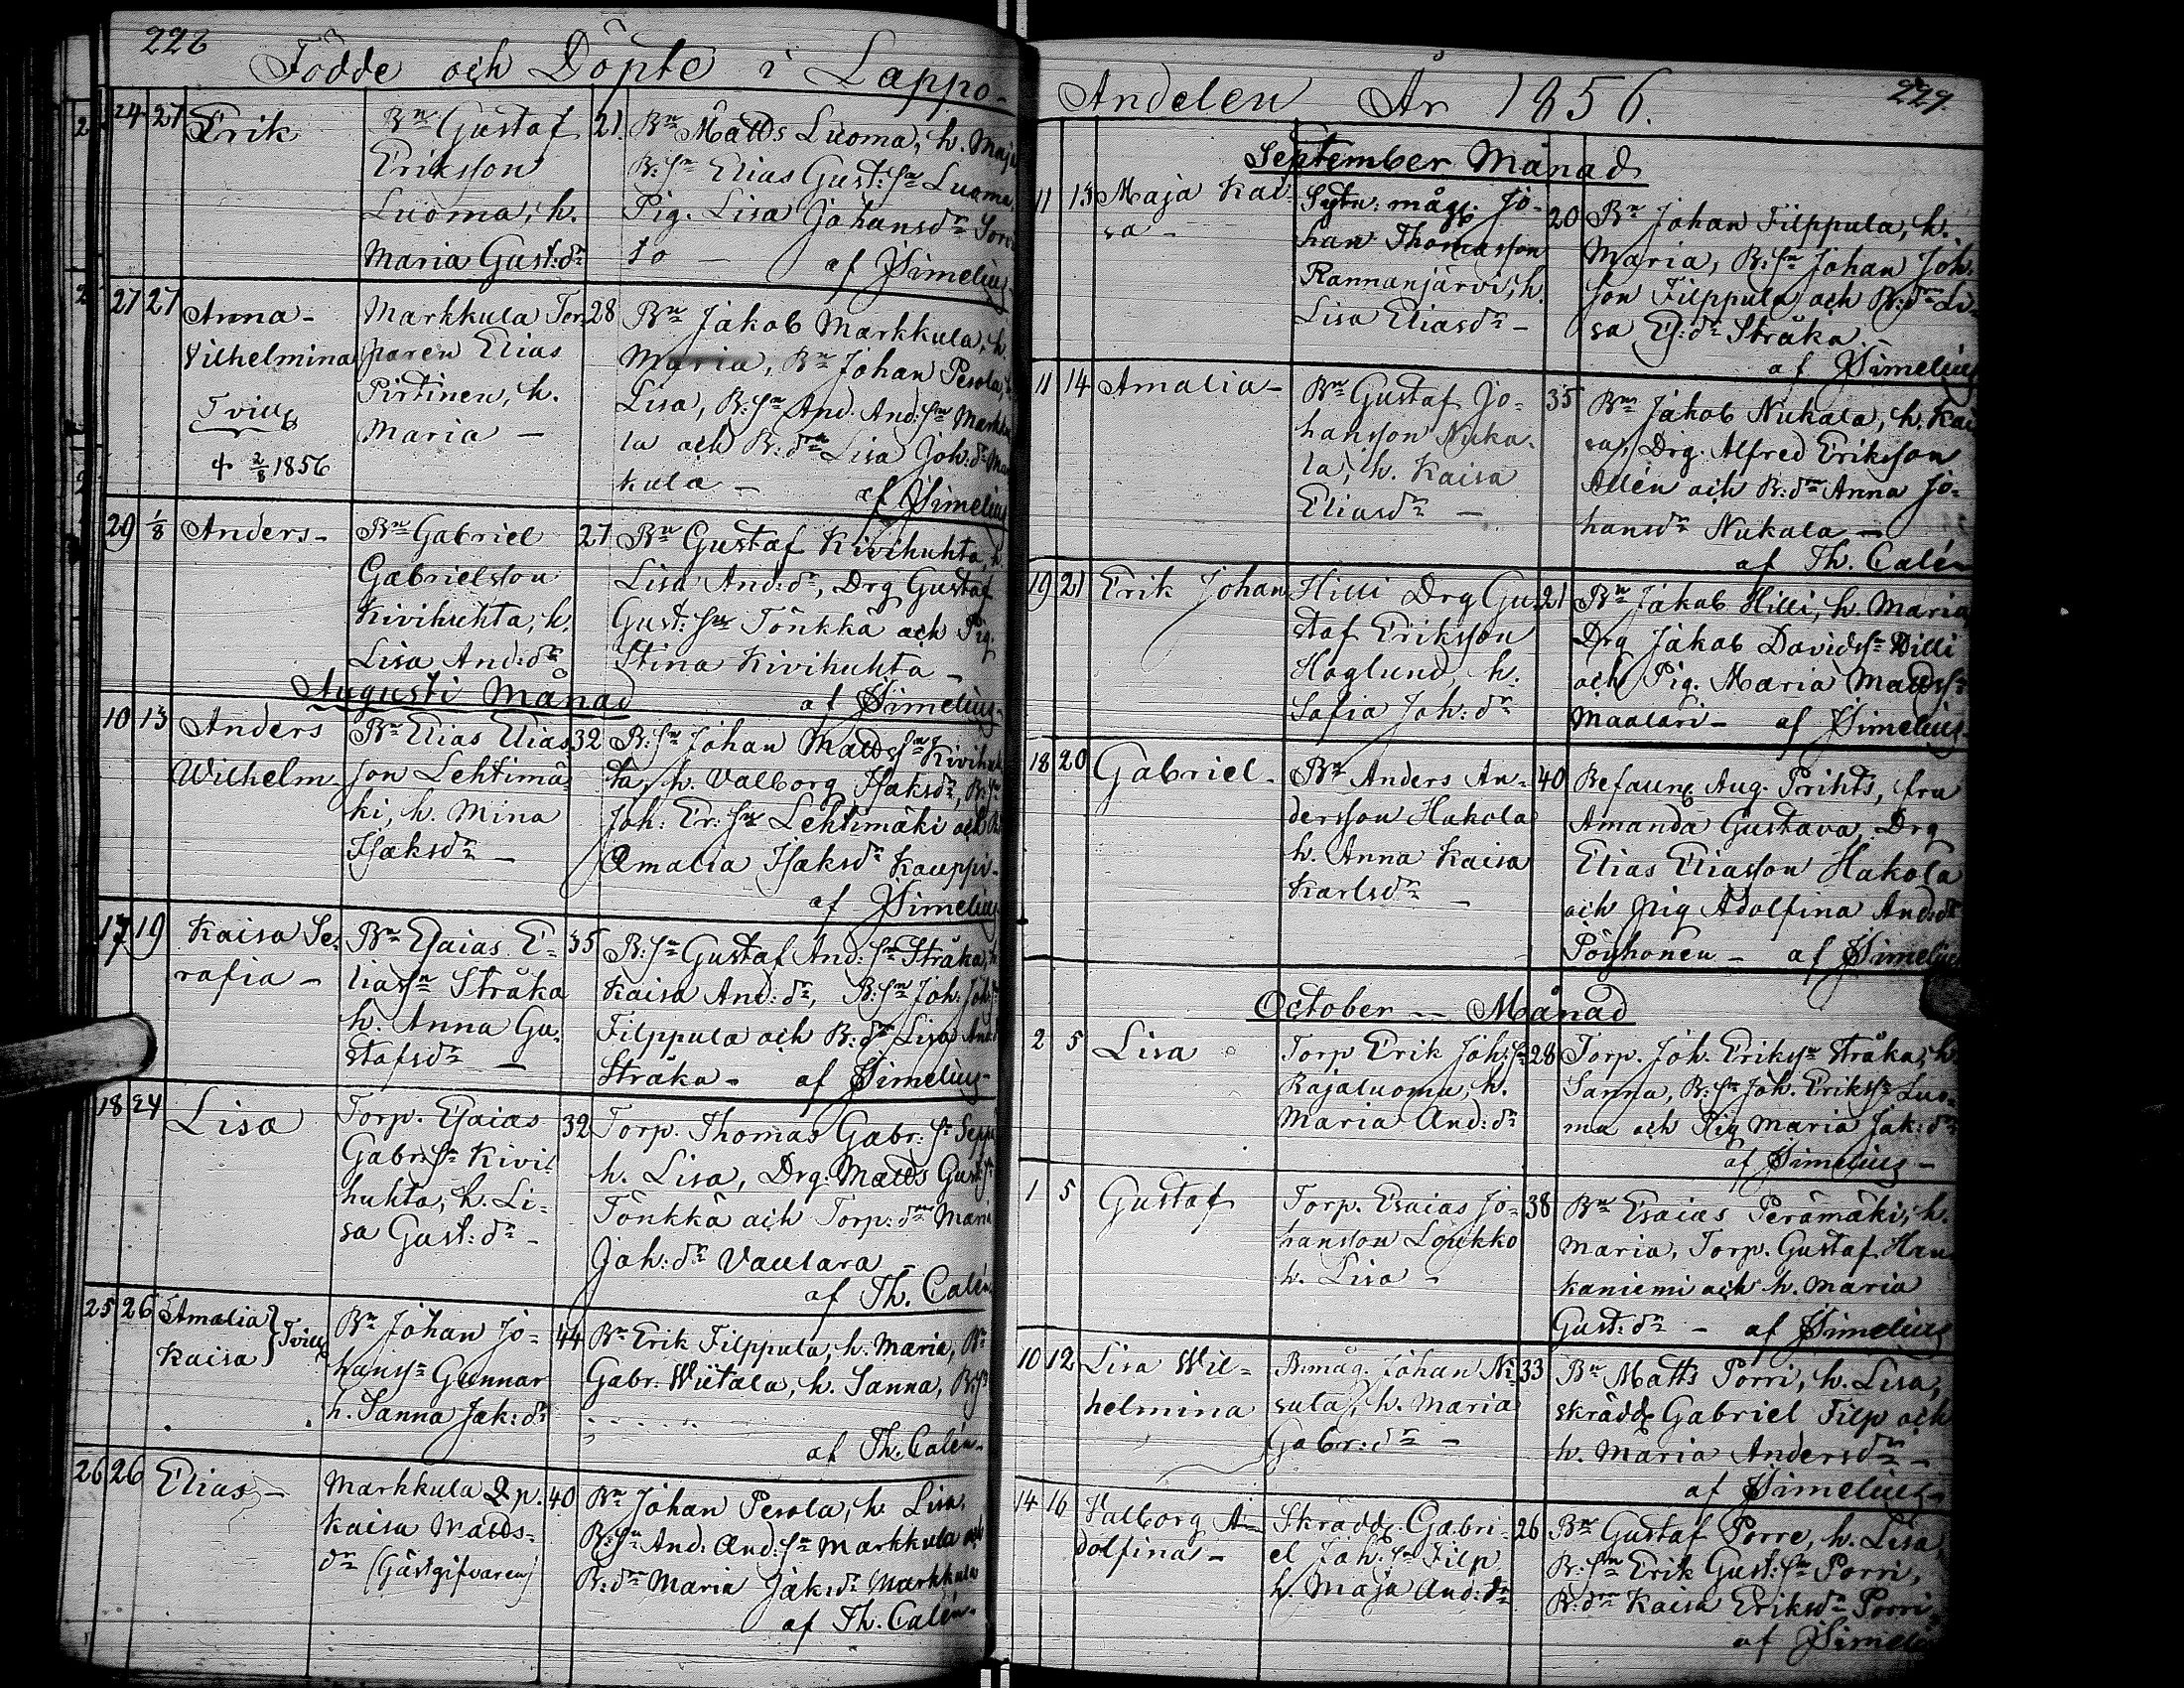 228
Födde och Döpte i Lappo-
24 27 Erik
Bn Gustaf
Eriksson
Luoma, h.
Maria Gust:dr
21. Bn Matts Luoma, h. Maja
B:sn Elias Gust:sn Luoma,
Pig. Lisa Johansdr
to — af JSimelius
27 27 Anna-
Vilhelmina
Tvill
† 2/8 1856
Markkula Tor-
paren Elias
Pirtinen, h.
Maria —
28 Bn Jakob Markkula, h.
Maria, Bn Johan Pesola, h.
Lisa, B:sn And. And:sn Markku
la och B:dr Lisa Joh:dr Mark
kula — af JSimelius
29 1/8 Anders-
Bn Gabriel
Gabrielsson
Kivihuhta, h.
Lisa And:dr
27 Bn Gustaf Kivihuhta, h
Lisa And:dr, Drg Gustaf
Gust:sn Tönkkä och Pig.
Stina Kivihuhta —
af JSimelius-
Augusti Månad
10 13 Anders
Wilhelm-
Bn Elias Elias
son Lehtimä-
ki, h. Mina
Isaksdr —
32 B:sn Johan Mattssn Kivihuh
ta, h. Valborg Isaksdr, B:sn
Joh: Er:sn Lehtimäki och
Amalia Isaksdr Kauppi-
af JSimelius
17 19 Kaisa Se-
rafia —
Bn Esaias E-
liassn Stråka
h. Anna Gu-
stafsdr —
35 B:sn Gustaf And:sn Stråka, h
Kaisa And:dr, B:sn Joh: Joh:s
Filppula och B:dr Lisa And:
Stråka — af JSimelius-
18 24 Lisa
Torp. Esaias
Gabr:sn Kivi-
huhta, h. Li-
sa Gust:dr -
32 Torp. Thomas Gabr:sn Seppä
h. Lisa, Drg. Matts Gust:sn
Tönkkä och Torp:dr Maria
Joh:dr Vaulara —
af Th. Calén.
25 26 Amalia
Kaisa } Tvill
Bn Johan Jo-
hanssn Gunnar
h. Sanna Jak:dr
44 Bn Erik Filppula, h. Maria, Bn
Gabr. Wiitala, h. Sanna, B:sn
. . . . . .
af Th. Calén-
26 26 Elias —
Markkula Qp.
Kaisa Matts-
dr (Gästgifvaren)
40 Bn Johan Pesola, h. Lisa,
B:sn And. And:sn Markkula och
B:dr Maria Jaksdr Markkula
af Th. Calén.
229
Andelen År 1856.
September Månad
11 13 Maja Kai-
sa -
Sytn: måg Jo-
han Thomasson
Rannanjärvi, h.
Lisa Eliasdr —
20 Bn Johan Filppula, h.
Maria, B:sn Johan Joh.
son Filppula och B:dr Li-
sa Es:dr Stråka
af JSimelius
11 14 Amalia —
Bn Gustaf Jo-
hansson Nuka-
la, h. Kaisa
Eliasdr —
35 Bn Jakob Nukala, h. Kai
sa, Drg. Alfred Eriksson
Allén och B:dr Anna Jo-
hansdr Nukala —
af Th. Calén
19 21 Erik Johan
Hilli Drg Gu-
staf Eriksson
Haglund, h.
Sofia Joh:dr
21 Bn Jakob Hilli, h. Maria
Drg Jakob Davidssn Hilli
och Pig. Maria Mattss
Maalari — af JSimelius
18 20 Gabriel -
Bn Anders An-
dersson Hakola
h. Anna Kaisa
Karlsdr —
40 Befalln Aug. Prihts, fru
Amanda Gustava, Drg
Elias Eliasson Hakola
och Pig Adolfina And:dr
Pöyhönen — af JSimelius
October — Månad
2 5 Lisa
Torp Erik Joh:sn
Rajaluoma, h.
Maria And:dr
28 Torp. Joh. Erikssn Stråka, h.
Sanna, B:sn Joh. Erikssn Luo-
ma och Pig Maria Jak:dr
af JSimelius —
1 5 Gustaf
Torp. Esaias Jo-
hansson Loukko
h. Lisa —
38 Bn Esaias Perämäki, h.
Maria, Torp. Gustaf Han
kaniemi och h. Maria
Gust:dr — af JSimelius
10 12 Lisa Wil-
helmina
B:måg. Johan Ni-
sula, h. Maria
Gabr:dr —
33 Bn Matts Porri, h. Lisa,
skrädd Gabriel Filp och
h. Maria Andersdr —
af JSimelius-
14 16 Valborg A-
dolfina —
Skrädd. Gabri-
el Joh:sn Filp
h. Maja And:dr
26 Bn Gustaf Porre, h. Lisa,
B:sn Erik Gust:sn Porri,
B:dr Kaisa Eriksdr Porri
af JSimelius